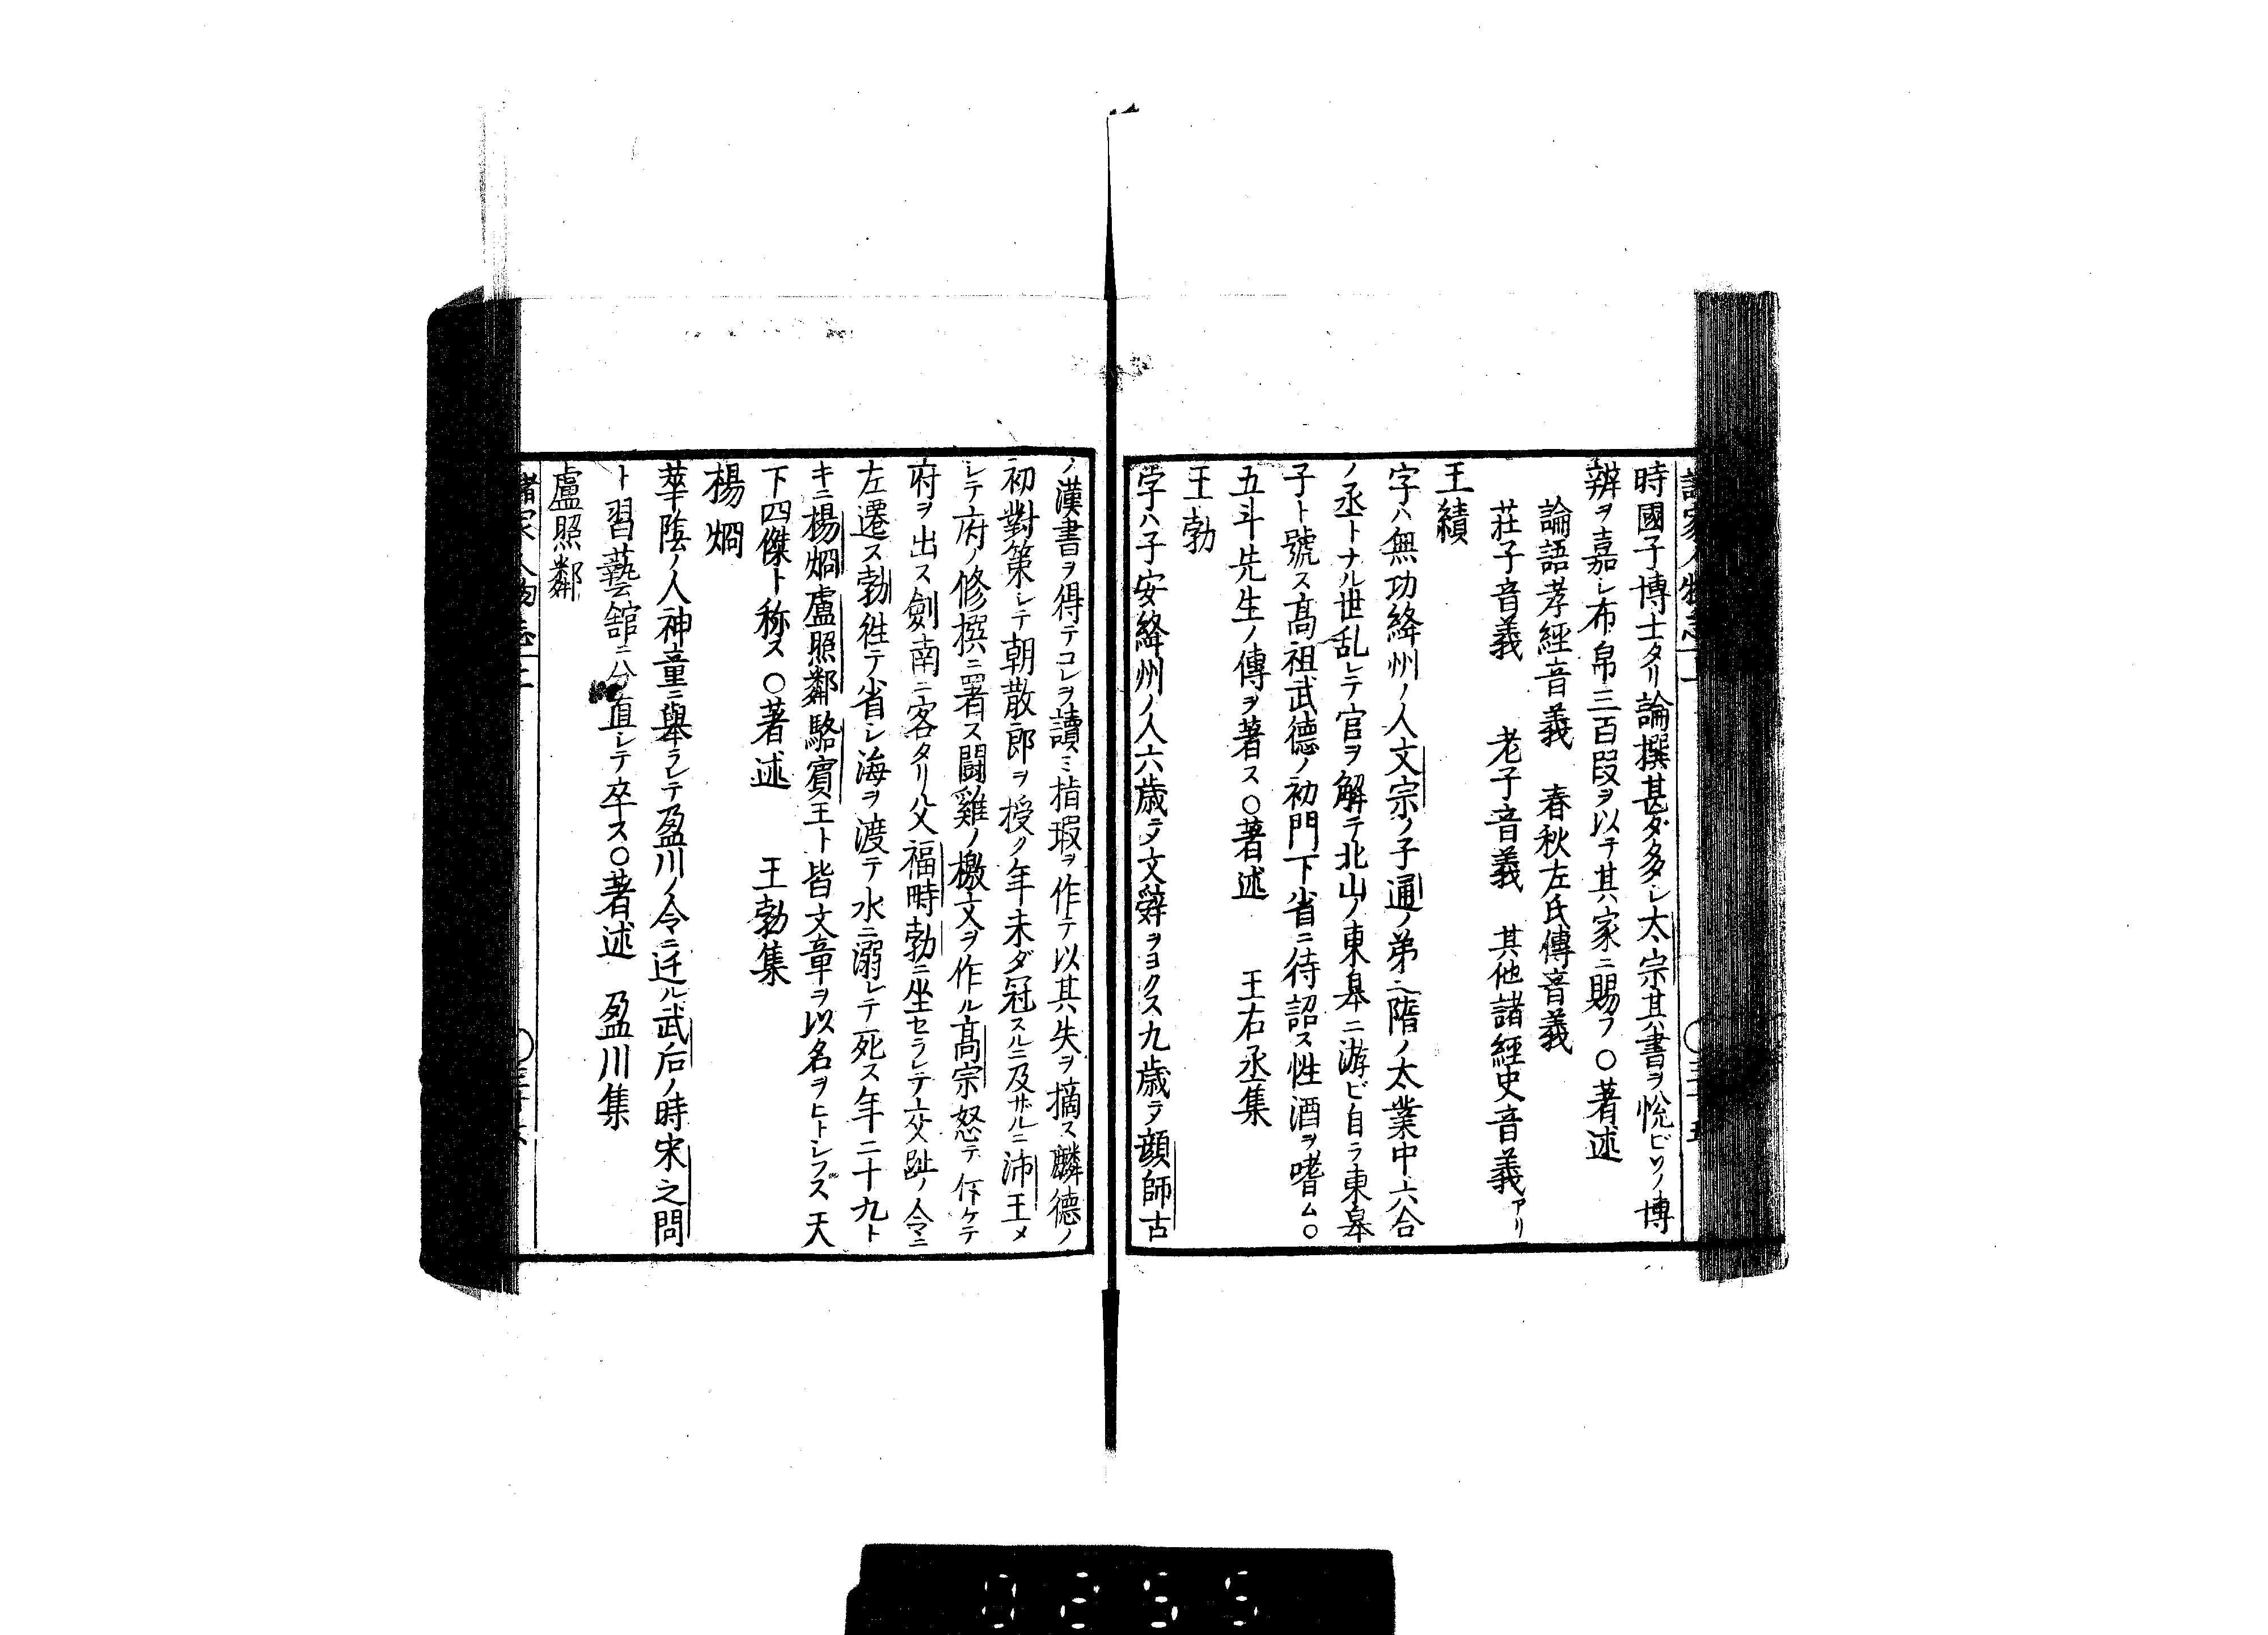 時國子博士タリ論撰甚ダ多シ太宗其書ヲ悦ビソノ博
辨ヲ嘉シ布帛三百段ヲ以テ其家ニ賜フ〇著述
論語孝經音義 春秋左氏傳音義
莊子音義 老子音義 其他諸經史音義アリ
王績
字ハ無功絳州ノ人文宗ノ子通ノ弟ニ隋ノ太業中六合
ノ丞トナル世乱シテ官ヲ解テ北山ノ東皋ニ游ビ自ラ東皋
子ト號ス高祖武德ノ初門下省ニ待詔ス性酒ヲ嗜ム〇
五斗先生ノ傳ヲ著ス〇著述 王右丞集
王勃
字ハ子安絳州ノ人六歳ニテ文辭ヲヨクス九歳ニテ顔師古
ノ漢書ヲ得テコレヲ讀ミ指瑕ヲ作テ以其失ヲ摘ス麟德ノ
初對策シテ朝散郎ヲ授ク年未ダ冠スルニ及ザルニ沛王メ
シテ府ノ修撰ニ署ス闘雞ノ檄文ヲ作ル高宗怒テ斥ケテ
府ヲ出ス劍南ニ客タリ父福畤勃ニ坐セラレテ交趾ノ令ニ
左遷ス勃徃テ省シ海ヲ渡テ水ニ溺レテ死ス年二十九ト
キニ楊烱盧照鄰駱賓王ト皆文章ヲ以名ヲヒトシフズ天
下四傑ト称ス〇著述 王勃集
楊烱
華陰ノ人神童ニ舉ラレテ盈川ノ令ニ迁ル武后ノ時宋之問
ト習藝舘ニ分直シテ卒ス〇著述 盈川集
盧照鄰
諸家人物志二